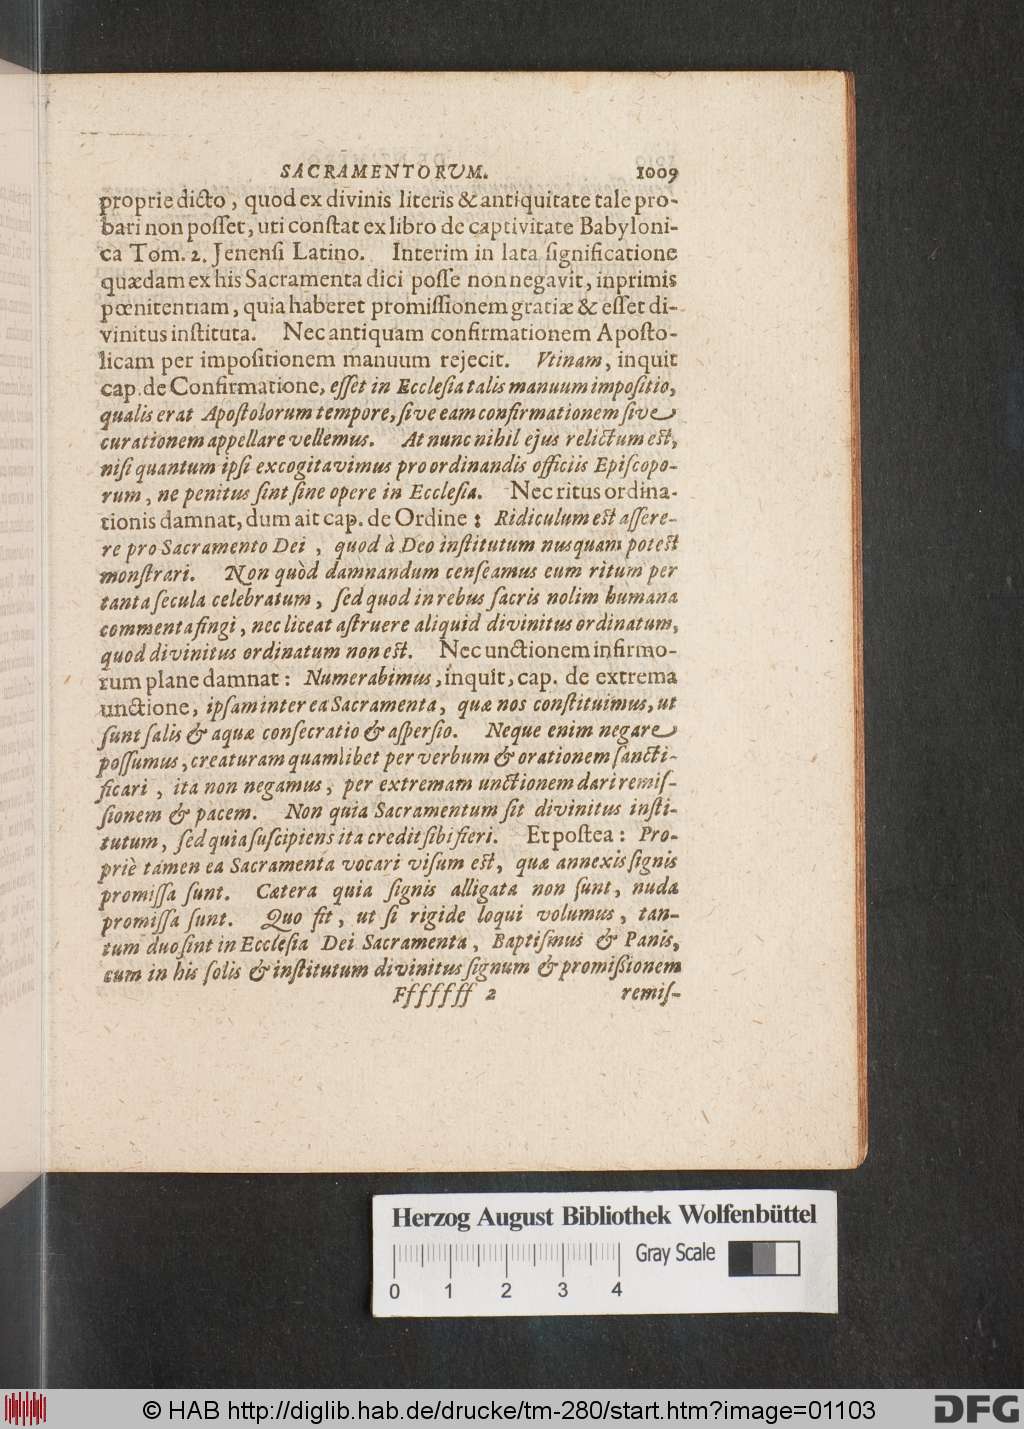 SACRAMENTORVM. 1009
proprie dicto, quod ex divinis literis & antiquitate tale pro-
bari non posset, uti constat ex libro de captivitate Babyloni-
ca Tom. 2. Jenensi Latino. Interim in lata significatione
quædam ex his Sacramenta dici posse non negavit, inprimis
pœnitentiam, quia haberet promissionem gratiæ & esset di-
vinitus instituta. Nec antiquam confirmationem Aposto-
licam per impositionem manuum rejecit. Vtinam, inquit
cap. de Confirmatione, esset in Ecclesia talis manuum impositio,
qualis erat Apostolorum tempore, sive eam confirmationem sive
curationem appellare vellemus. At nunc nihil ejus relictum est,
nisi quantum ipsi excogitavimus pro ordinandis officiis Episcopo-
rum, ne penitus sint sine opere in Ecclesia. Nec ritus ordina-
tionis damnat, dum ait cap. de Ordine: Ridiculum est assere-
re pro Sacramento Dei, quod à Deo institutum nusquam potest
monstrari. Non quòd damnandum censeamus eum ritum per
tanta secula celebratum, sed quod in rebus sacris nolim humana
commenta fingi, nec liceat astruere aliquid divinitus ordinatum,
quod divinitus ordinatum non est. Nec unctionem infirmo-
rum plane damnat: Numerabimus, inquit, cap. de extrema
unctione, ipsam inter ea Sacramenta, quæ nos constituimus, ut
sunt salis & aquæ consecratio & aspersio. Neque enim negare
possumus, creaturam quamlibet per verbum & orationem sancti-
ficari, ita non negamus, per extremam unctionem dari remis-
sionem & pacem. Non quia Sacramentum sit divinitus insti-
tutum, sed quia suscipiens ita credit sibi fieri. Et postea: Pro-
priè tamen ea Sacramenta vocari visum est, quæ annexis signis
promissa sunt. Cætera quia signis alligata non sunt, nuda
promissa sunt. Quo fit, ut si rigide loqui volumus, tan-
tum duo sint in Ecclesia Dei Sacramenta, Baptismus & Panis,
cum in his solis & institutum divinitus signum & promißionem
Fffffff 2 remis-
Herzog August Bibliothek Wolfenbüttel
Gray Scale
0 1 2 3 4
© HAB http://diglib.hab.de/drucke/tm-280/start.htm?image=01103
DFG